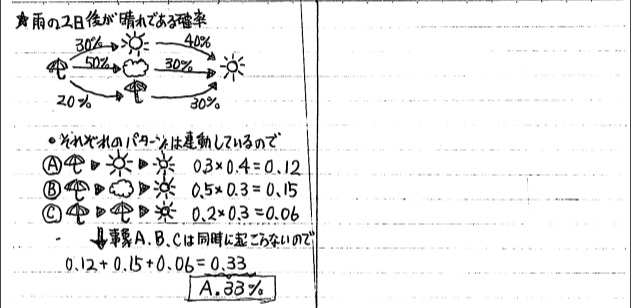 ★雨の2日後が晴れである確率
30% 40%
50% 30%
20% 30%
・それぞれのパターンは連動しているので
Ⓐ 0.3×0.4=0.12
Ⓑ 0.5×0.3=0.15
Ⓒ 0.2×0.3=0.06
事象A.B.Cは同時に起こらないので
0.12+0.15+0.06=0.33
A.33%